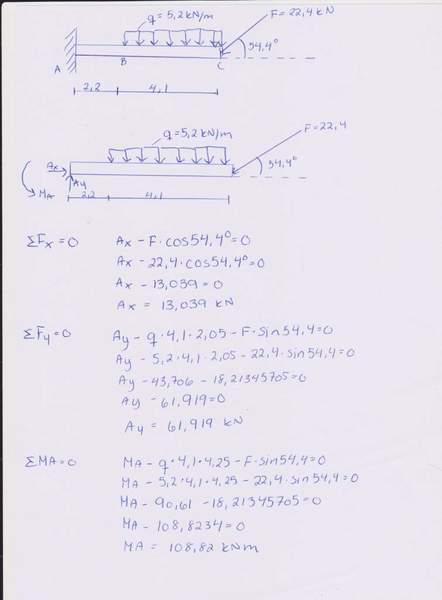 q = 5,2 kN/m
F = 22,4 kN
54,4°
A
B
C
2,2
4,1
q = 5,2 kN/m
F = 22,4
54,4°
Ax
Ay
MA
2,2
4,1
ΣFx = 0
Ax - F · cos54,4° = 0
Ax - 22,4 · cos54,4° = 0
Ax - 13,039 = 0
Ax = 13,039 kN
ΣFy = 0
Ay - q · 4,1 · 2,05 - F · sin54,4 = 0
Ay - 5,2 · 4,1 · 2,05 - 22,4 · sin54,4 = 0
Ay - 43,706 - 18,21345705 = 0
Ay - 61,919 = 0
Ay = 61,919 kN
ΣMA = 0
MA - q · 4,1 · 4,25 - F · sin54,4 = 0
MA - 5,2 · 4,1 · 4,25 - 22,4 · sin54,4 = 0
MA - 90,61 - 18,21345705 = 0
MA - 108,8234 = 0
MA = 108,82 kNm